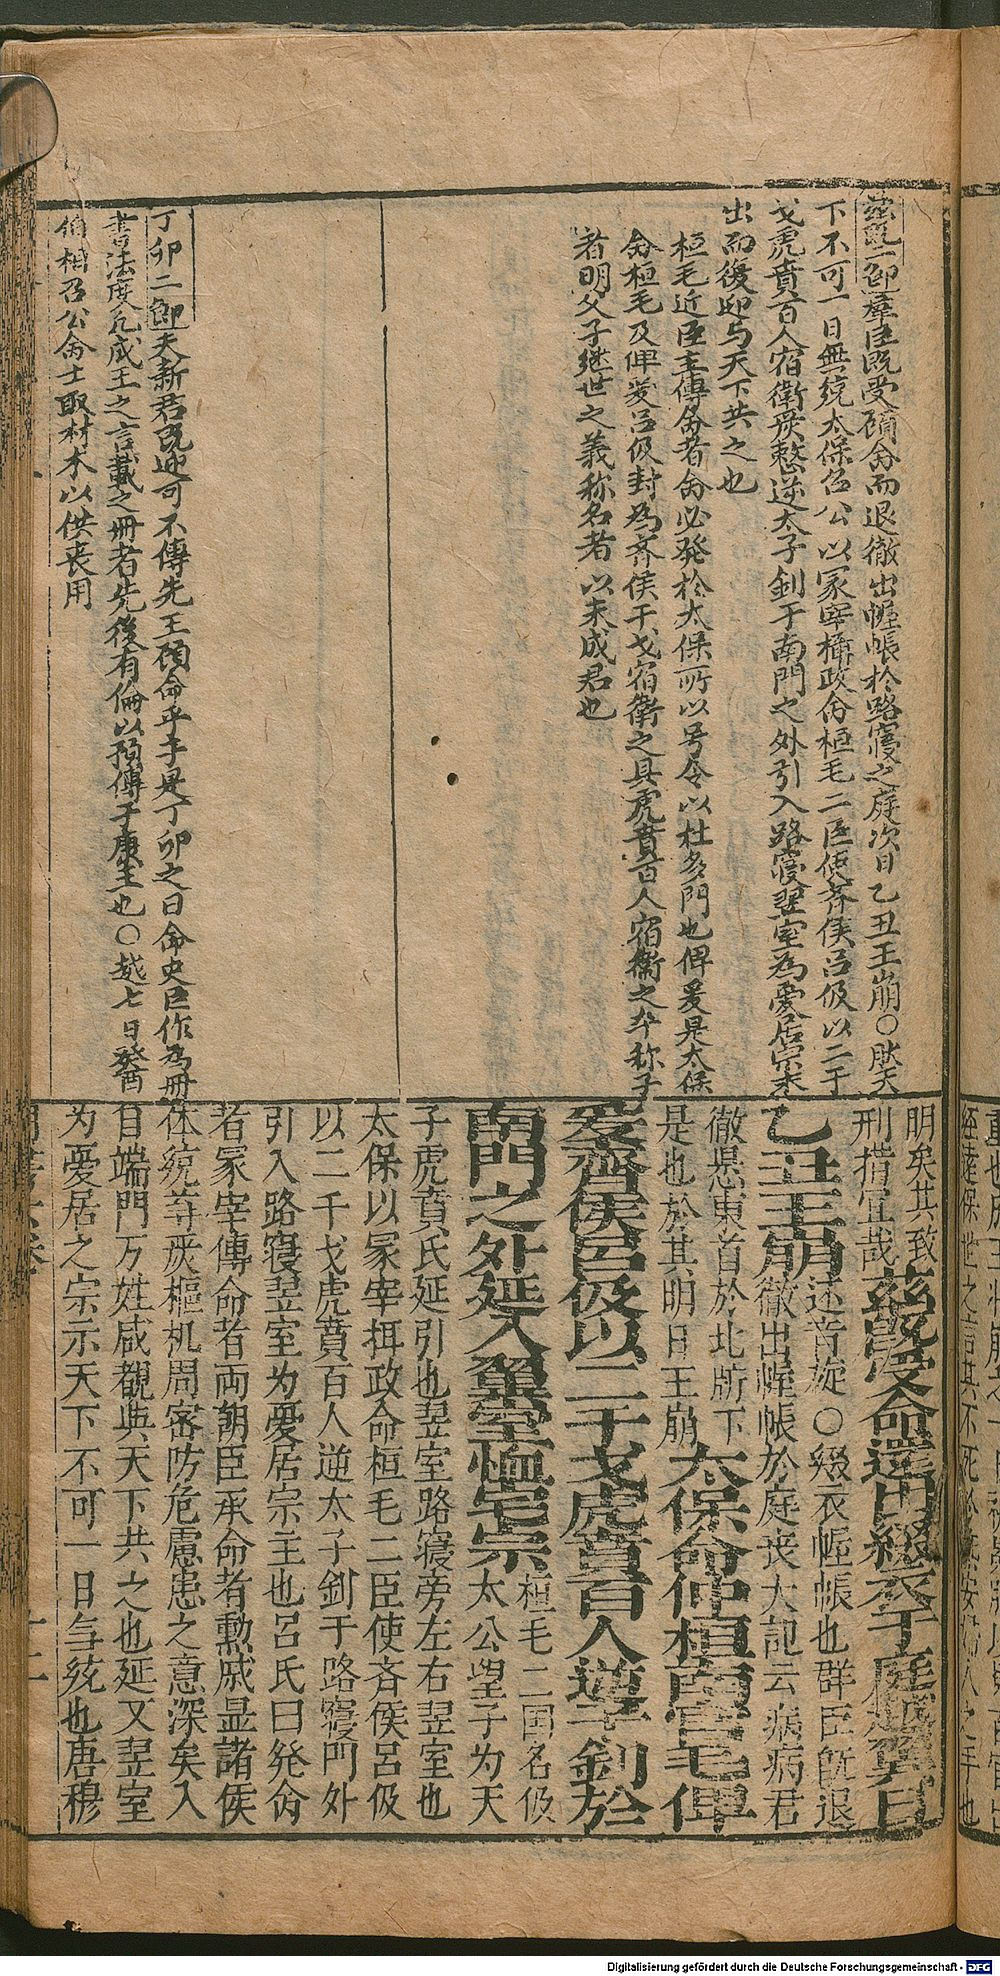 茲既二節羣臣既受顧命而退徹出幄帳於路寢之庭次日乙丑王崩○肰天
下不可一日無統太保召公以冢宰攝政命桓毛二臣使齊侯呂伋以二干
戈虎賁百人宿衛嚴整逆太子釗于南門之外引入路寢翌室為憂居宗主
出而復迎与天下共之也
桓毛近臣主傳命者命必發於太保所以号令以杜多門也俾爰是太保
命桓毛及俾爰呂伋封為齊侯干戈宿衛之具虎賁百人宿衛之卒称子
者明父子継世之義称名者以未成君也
丁卯二節夫新君既迎可不傳先王顧命乎于是丁卯之日命史臣作為冊
書法度凡成王之言載之冊者先後有倫以預傳于康王也○越七日癸酉
伯相召公命士取材木以供丧用
明矣其致
刑措宜哉茲既受命還出綴衣于庭越翼日
乙丑王崩還音旋○綴衣幄帳也群臣既退
徹出幄帳於庭丧大記云病病君
徹悬東首於北牖下
是也於其明日王崩太保命仲桓南宮毛俾
爰齊侯呂伋以二干戈虎賁百人逆子釗於
南門之外延入翼室恤宅宗桓毛二国名伋
太公望子为天
子虎賁氏延引也翌室路寢旁左右翌室也
太保以冢宰摂政命桓毛二臣使斉侯呂伋
以二干戈虎賁百人逆太子釗于路寢門外
引入路寢翌室为憂居宗主也呂氏曰発命
者冢宰傳命者両朝臣承命者勲戚显諸侯
体統尊嚴樞机周密防危慮患之意深矣入
自端門万姓咸覩與天下共之也延入翌室
为憂居之宗示天下不可一日無統也唐穆
十二
Digitalisierung gefördert durch die Deutsche Forschungsgemeinschaft - DFG